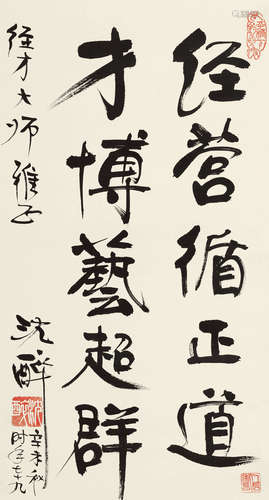 经营循正道
才博藝超群
经才大师雅正
沈醉
辛未秋
时年七十九